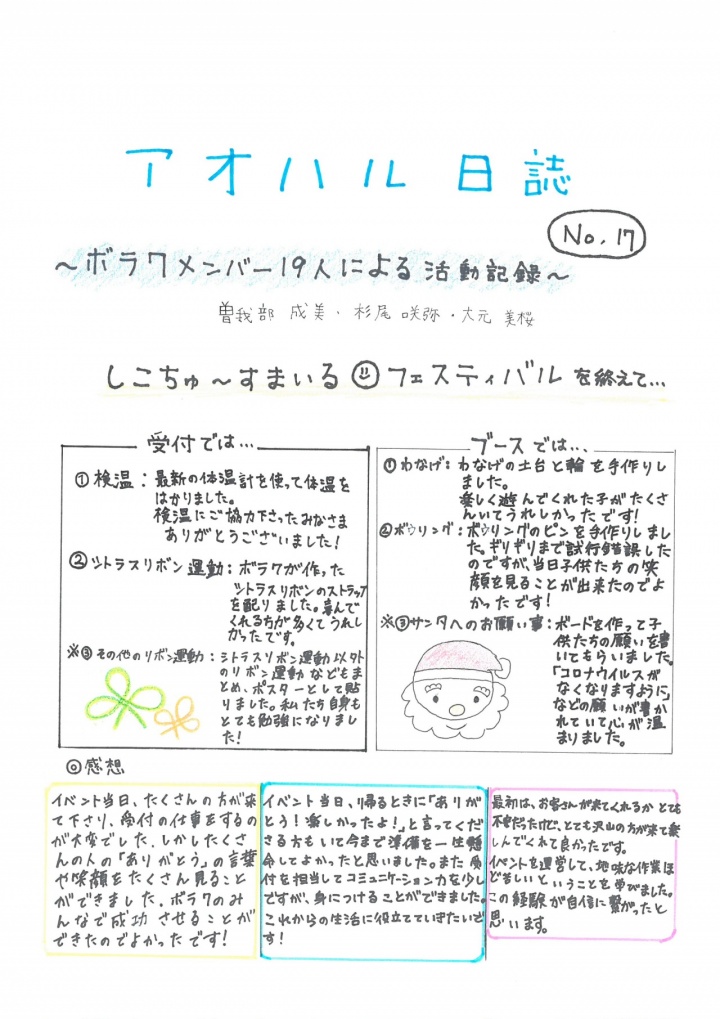 アオハル日誌
No.17
～ボラクメンバー19人による活動記録～
曽我部 成美・杉尾 咲弥・大元 美桜
しこちゅ～すまいる フェスティバルを終えて…
受付では…
①検温：最新の体温計を使って体温を
はかりました。
検温にご協力下さったみなさま
ありがとうございました！
②シトラスリボン運動：ボラクが作った
シトラスリボンのストラップ
を配りました。喜んで
くれる方が多くてうれし
かったです。
※③その他のリボン運動：シトラスリボン運動以外
のリボン運動などもま
とめ、ポスターとして貼
りました。私たち自身も
とても勉強になりまし
た！
ブースでは…
①わなげ：わなげの土台と輪を手作りし
ました。
楽しく遊んでくれた子がたくさ
んいてうれしかったです！
②ボウリング：ボウリングのピンを手作りしまし
た。ギリギリまで試行錯誤した
のですが、当日子供たちの笑
顔を見ることが出来たのでよ
かったです！
※③サンタへのお願い事：ボードを作って子
供たちの願いを書
いてもらいました。
「コロナウイルスが
なくなりますように」
などの願いが書か
れていて心が温
まりました。
◎感想
イベント当日、たくさんの方が来
て下さり、受付の仕事をするの
が大変でした。しかしたくさ
んの人の「ありがとう」の言葉
や笑顔をたくさん見ること
ができました。ボラクのみ
んなで成功させることが
できたのでよかったです！
イベント当日、帰るときに「ありが
とう！楽しかったよ！」と言ってくだ
さる方もいて今まで準備を一生懸
命してよかったと思いました。また受
付を担当してコミュニケーション力を少し
ですが、身につけることができました。
これからの生活に役立てていきたいで
す！
最初は、お客さんが来てくれるかとても
不安だったけど、とても沢山の方が来て楽
しんでくれて良かったです。
イベントを運営して、地味な作業ほ
ど苦しいということを学びました。
この経験が自信に繋がったと
思います。